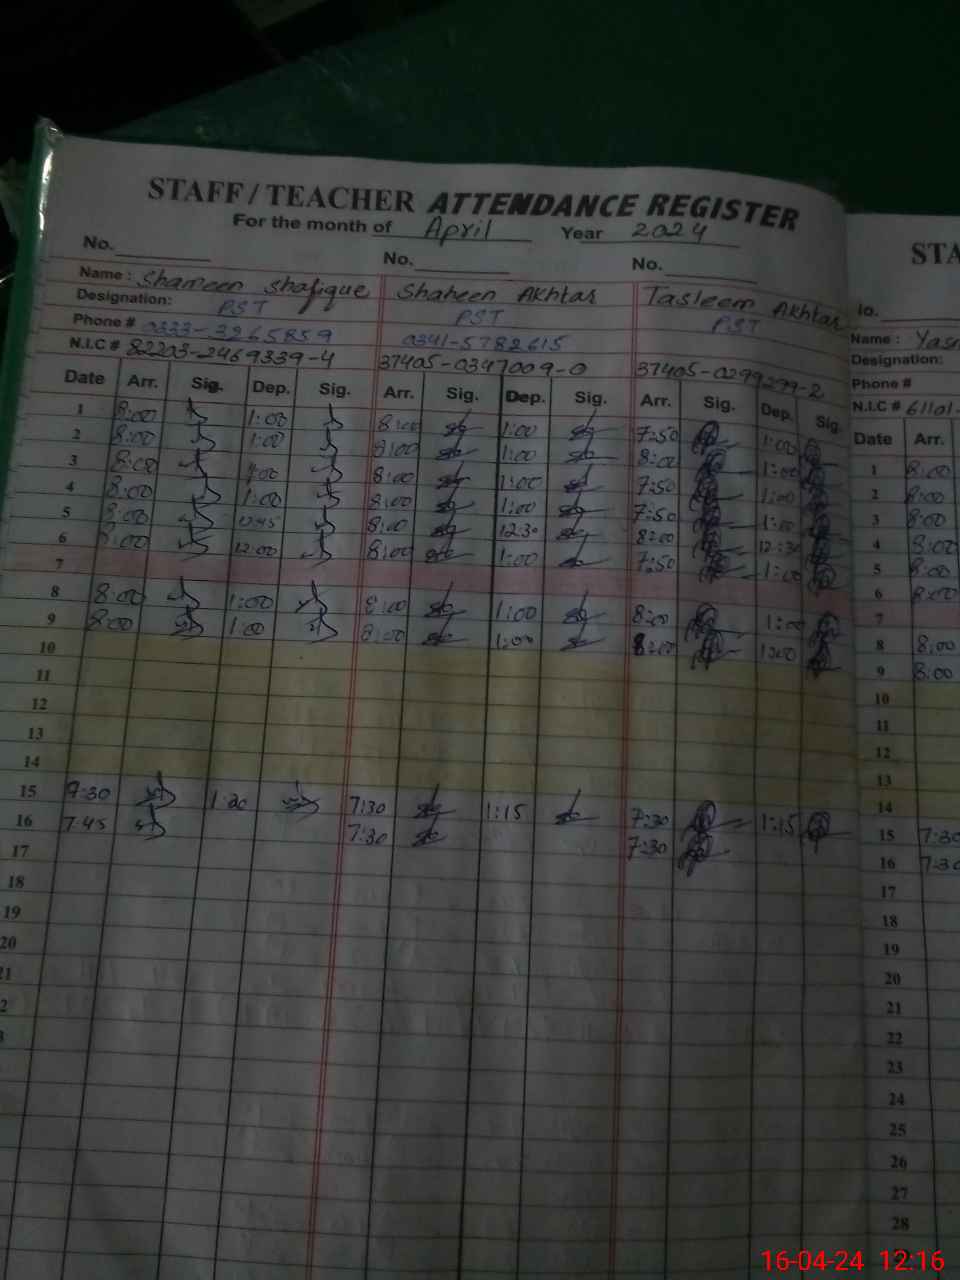 STAFF / TEACHER ATTENDANCE REGISTER
For the month of April Year 2024
No. No. No.
Name : Shameen Shafique Shaheen Akhtar Tasleem Akhtar
Designation: PST PST PST
Phone # 0333-3265859 0341-5782615
N.I.C # 82203-2469339-4 37405-0347009-0 37405-0299299-2
Date Arr. Sig. Dep. Sig. Arr. Sig. Dep. Sig. Arr. Sig. Dep. Sig.
1 8:00 1:00 8:00 1:00 7:50 1:00
2 8:00 1:00 8:00 1:00 8:00 1:00
3 8:00 1:00 8:00 1:00 7:50 1:00
4 8:00 1:00 8:00 1:00 7:50 1:00
5 8:00 12:45 8:00 12:30 8:00 12:30
6 8:00 12:00 8:00 1:00 7:50 1:00
7
8 8:00 1:00 8:00 1:00 8:00 1:00
9 8:00 1:00 8:00 1:00 8:00 1:00
10
11
12
13
14
15 7:30 1:20 7:30 1:15 7:30 1:15
16 7:45 7:30 7:30
17
18
19
20
21
2
3
STA
Name : Yasm
Designation:
Phone #
N.I.C # 61101-
Date Arr.
1 8:00
2 8:00
3 8:00
4 8:00
5 8:00
6 8:00
7
8 8:00
9 8:00
10
11
12
13
14
15 7:30
16 7:30
17
18
19
20
21
22
23
24
25
26
27
28
16-04-24 12:16